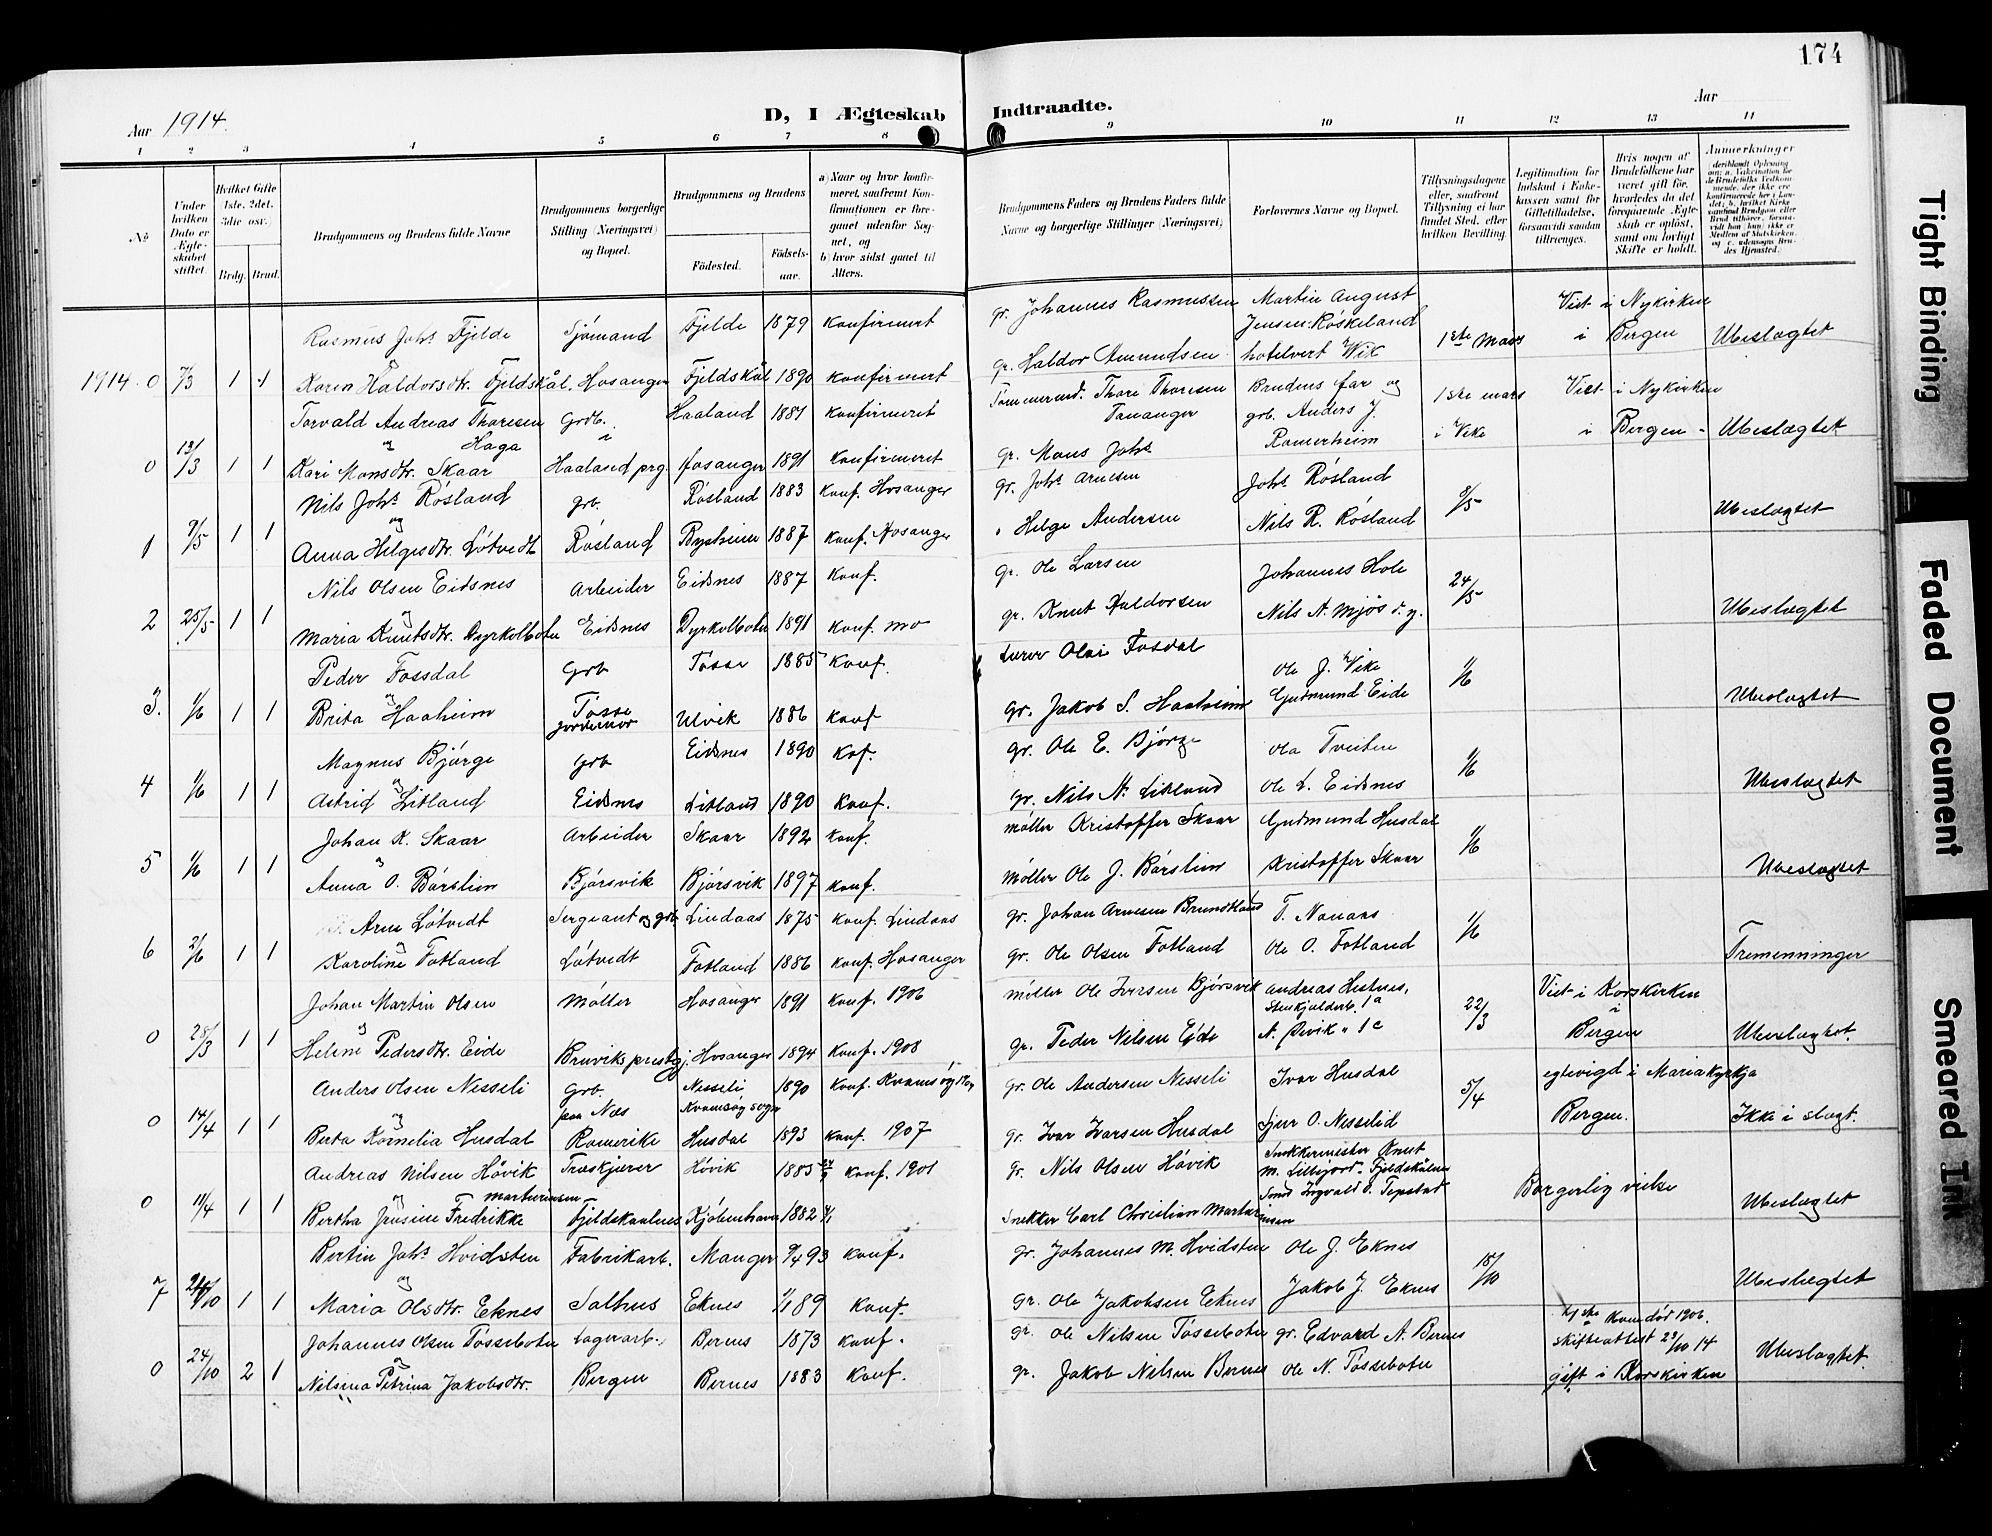 174
Aar 1914.
D, I Ægteskab Indtraadte.
Aar
1 2 3 4 5 6 7 8 9 10 11 12 13 14
No
Under hvilken Dato er Ægteskabet stiftet.
Hvilket Gifte (1ste, 2det, 3die osv.)
Brdg. Brud.
Brudgommens og Brudens fulde Navne
Brudgommens borgerlige Stilling (Næringsvei) og Bopæl.
Brudgommens og Brudens
Fødested. Fødselsaar.
a) Naar og hvor konfirmeret, saafremt Konfirmationen er foregaaet udenfor Sognet, og
b) hvor sidst gaaet til Alters.
Brudgommens Faders og Brudens Faders fulde Navne og borgerlige Stillinger (Næringsvei)
Forlovernes Navne og Bopæl.
Tillysningsdagene eller, saafremt Tillysning ei har fundet Sted, efter hvilken Bevilling.
Legitimation for Indskud i Enkekassen samt for Giftetilladelse, forsaavidt saadan tiltrænges.
Hvis nogen af Brudefolkene har været gift før, hvorledes da det foregaaende Ægteskab er opløst, samt om lovligt Skifte er holdt.
Anmerkninger
Rasmus Johs Fjelde Sjømand Fjelde 1879 konfirmert gr. Johannes Rasmussen Martin August Jensen Røskeland 1ste Mars Viet i Nykirken i Bergen Ubeslægtet
1914. 0 7/3 1 1 og Karen Haldorsdtr. Fjeldskål. Hosanger Fjeldskål 1890 konfirmert gr. Haldor Amundsen hotelvert Wik
Torvald Andreas Thoresen Haga Grdb. i Haaland 1881 konfirmeret Tømmermd. Thore Thoresen Tananger Brudens far og grb. Anders J. Romerheim 1ste mars i Vike Viet i Nykirken i Bergen Ubeslægtet
0 13/3 1 1 og Kari Monsdtr. Skaar Haaland prg. Hosanger 1891 konfirmeret gr. Mons Johs
Nils Johs Røsland grb. Røsland 1883 konf. Hosanger gr. Johs Arnesen Johs Røsland 8/5 Ubeslægtet
1 9/5 1 1 og Anna Helgesdtr. Løtvedt Røsland Bysheim 1887 konf. Hosanger " Helge Andersen Nils R. Røsland
Nils Olsen Eidsnes Arbeider Eidsnes 1887 konf. gr. Ole Larsen Johannes Hole 24/5 Ubeslægtet
2 25/5 1 1 og Maria Knutsdtr. Dyrkolbotn Eidsnes Dyrkolbotn 1891 konf. mo gr. Knut Haldorsen Nils A. Mjøs d.y.
Peder Fossdal Grb Tøsse 1885 konf. lærer Olai Fosdal Ole J. Vike 1/6 Ubeslægtet
3. 1/6 1 1 og Brita Haaheim Tøsse jordemor Ulvik 1886 konf gr. Jakob S. Haaheim Gudmund Eide
Magnus Bjørge Grb Eidsnes 1890 kof. gr. Ole E. Bjørge Ola Tveiten 1/6 Ubeslægtet
4 1/6 1 1 og Astrid Litland Eidsnes Litland 1890 konf. gr. Nils N. Litland Ole L. Eidsnes
Johan K. Skaar Arbeider Skaar 1892 konf. møller Kristoffer Skaar Gudmund Husdal 1/6 Ubeslægtet
5 1/6 1 1 og Anna O. Børslien Bjørsvik Bjørsvik 1897 konf. Møller Ole J. Børslien Kristoffer Skaar
Arne Løtvedt Sergeant og grb. Lindaas 1875 konf. Lindaas gr. Johan Arnesen Brundtland T. Nanaas 1/6 Tremenninger
6 2/6 1 1 og Karoline Fotland Løtvedt Fotland 1886 konf. Hosanger gr. Ole Olsen Fotland Ole O. Fotland
Johan Martin Olsen Møller Hosanger 1891 konf. 1906 møller Ole Iversen Bjørsvik Andreas Hestnes, 22/3 Viet i Korskirken i Bergen Ubeslægtet.
0 28/3 1 1 og Helene Pedersdtr. Eide Bruviks prestgj. Hosanger 1894 konf. 1908 gr. Peder Nilsen Eide
Anders Olsen Nesseli Grb. paa Nes Nesseli Kvamsøy sogn 1890 konf. Kvamsøy gr. Ole Andersen Nesseli Ivar Husdal 5/4 egtevigd i Mariakyrkja Bergen. Ikkje i slegt.
0 14/4 1 1 og Berta Kornelia Husdal Romerike Husdal 1893 konf. 1907 gr. Ivar Ivarsen Husdal Sjur O. Nesselid
Andreas Nilsen Høvik Træskjærer Høvik 1885 konf. 1901 gr. Nils Olsen Høvik Snekkermester Knut M. Lillejord. Fjeldskålnes Borgerlig vielse Ubeslægtet
0 11/4 1 1 og Bertha Jensine Fredrikke Marturinsen Fjeldskaalnes Kjøbenhavn 1882 Snekker Carl Christian Marturinsen
Bertin Johs Hvidsten Fabrikarb. Manger 9/4 93 konf. gr. Johannes M. Hvidsten Ole J. Eknes 18/10 Ubeslægtet
7 24/10 1 1 og Maria Olsdtr. Eknes Salhus Eknes 1/1 89 konf. Gr. Ole Jakobsen Eknes Jakob J. Eknes
Johannes Olsen Tøssebotn Lagerarb. Bernes 1873 konf. gr. Ole Nilsen Tøssebotn gr. Edvard A. Bernes kone død 1906. skifteattest 23/10 14 gift i Korskirken Ubeslægtet
0 24/10 2 1 og Nilsina Petrina Jakobsdtr. Bergen Bernes 1883 konf. gr. Jakob Nilsen Bernes Ole N. Tøssebotn
Tight Binding
Faded Document
Smeared Ink